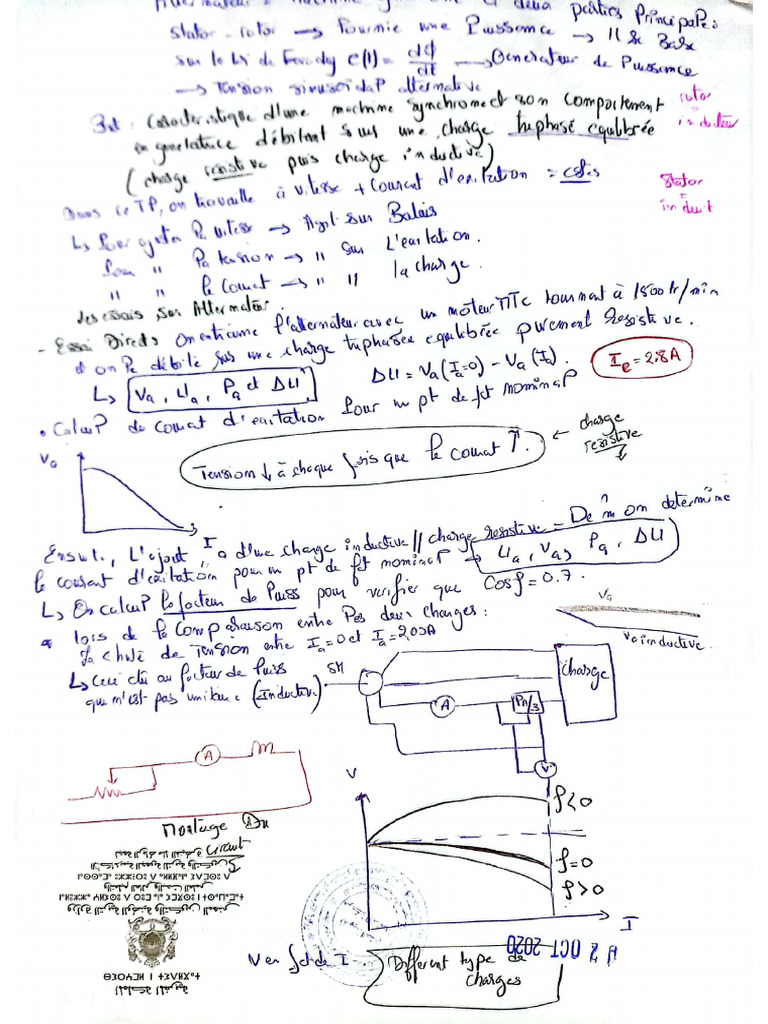 Alternateur = machine deux parties Principales :
stator - rotor → Fournie une Puissance
sur la loi de Faraday e(t) = dϕ/dt → Générateur de Puissance
→ Tension sinusoidal alternative
But : Caractéristique d'une machine synchrone et son comportement
en génératrice débitant sur une charge triphasé équilibrée
(charge résistive puis charge inductive)
rotor
inducteur
Dans ce TP, on travaille à vitesse + Courant d'exitation = cstes
stator
=
induit
↳ Pour ajuster la vitesse → Agit sur Balais
Pour " la tension → " sur L'exitation.
" " le Courant → " " la charge.
des essais sur Alternateur.
- Essai Direct : On entraine l'alternateur avec un moteur MCC tournant à 1500 tr/min
et on le débite sur une charge triphasée equilibrée purement resistive.
↳ Va, Ua, Pa et ΔU
ΔU = Va(Ia=0) - Va(Ia).
Ie = 2.8A
• Calcul de courant d'exitation Pour un pt de fct nominal
Tension ↓ à chaque fois que le courant ↑.
← charge resistive
Va
Ensuite, L'ajout d'une charge inductive // charge resistive = De m̂ on determine
Ia
le courant d'exitation pour un pt de fct nominal → Ua, Va, Pa, ΔU
↳ On calcul le facteur de Puiss pour verifier que Cosφ = 0.7.
• lors de la Comparaison entre les deux charges :
la chute de Tension entre Ia=0 et Ia=2,05A
↳ Ceci dû au facteur de Puiss
qui n'est pas unitaire (Inductive)
Va
Va inductive
SM
A
Pn/3
V
Charge
A
Montage Du Circuit
V
φ<0
φ=0
φ>0
I
V en fct de I
Different type de charges
02 OCT 2020